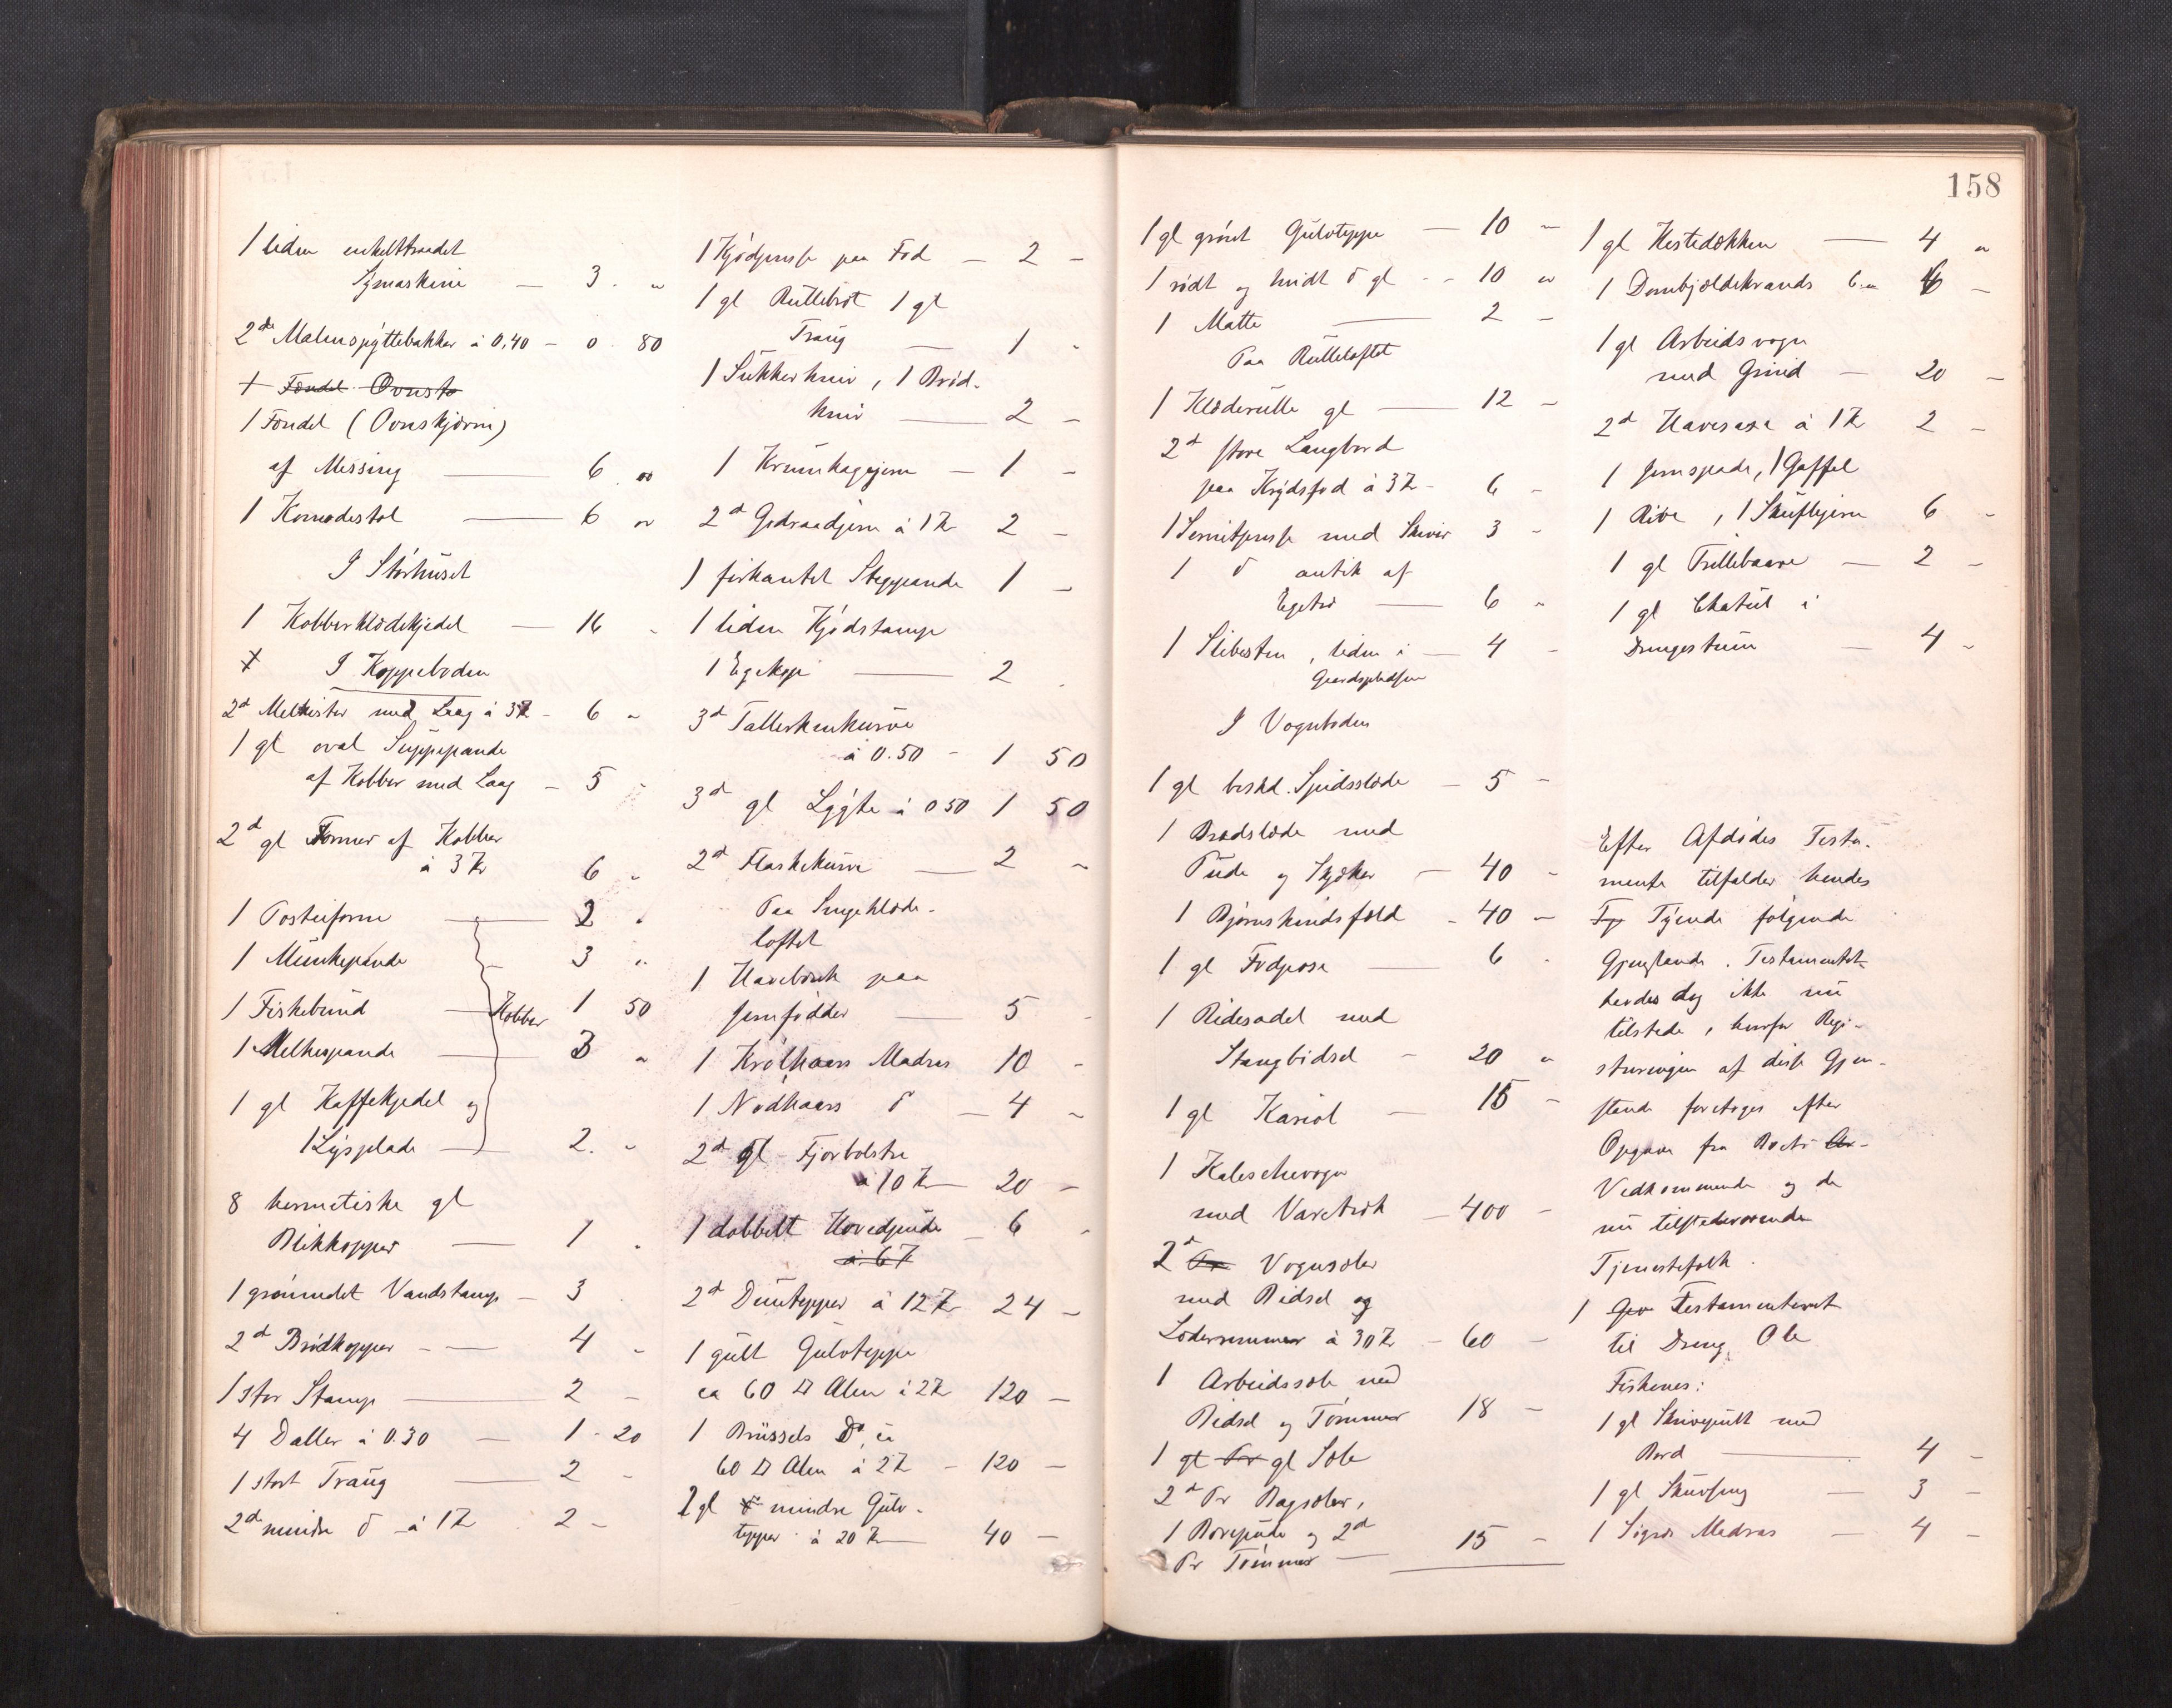 158
1 liden enkelttraadet
Symaskine — 3 "
2de Malmspyttebakker à 0,40 — 0. 80
1 Fændel Ovnsto
1 Fændel (Ovnskjærm)
af Messing — 6 "
1 Komodestol — 6 "
I Størhuset
1 Kobberklædekjedel — 16 "
I Koppeboden
2d Melkister med Laag à 3 Kr — 6 "
1 gl oval Suppepande
af Kobber med Laag — 5 "
2d gl Former af Kobber
à 3 Kr 6 "
1 Posteiform — 2 "
1 Munkepande 3 "
1 Fiskebund — Kobber 1 50
1 Melkespande — 3 "
1 gl Kaffekjedel og
1 Lysplade — 2. "
8 hermetiske gl
Blikkopper — 1 "
1 grønmalet Vandstamp — 3
2d Brødkopper — 4 "
1 stor Stamp — 2 -
4 Daller à 0.30 — 1 - 20
1 stort Traug — 2 -
2d mindre do à 1 Kr 2 -
1 Kjødpresse paa Fod — 2 -
1 gl Rullebræt 1 gl
Traug — 1 -
1 Sukkerkniv, 1 Brød-
kniv — 2 -
1 Krumkagejern — 1 -
2d Godraadjern à 1 Kr 2 -
1 firkantet Stegepande 1 -
1 liden Kjødstamp
1 Egekop — 2 -
3d Tallerkenkurve
à 0.50 - 1 50
3d gl Lygte à 0 50 1 50
2d Flaskekurve — 2 -
Paa Sengeklæde-
loftet
1 Havebænk paa
Jernfødder — 5 -
1 Krølhaars Madras 10 -
1 Nødhaars do — 4 -
2d gl Fjærbolstre
à 10 Kr — 20 -
1 dobbelt Hovedpude — 6 -
à 6 Kr
2d Duntepper à 12 Kr 24 -
1 gult Gulvteppe
ca 60 □ Alen à 2 Kr 120 -
1 Brüssels Do, ca
60 □ Alen à 2 Kr - 120 -
2 gl mindre Gulv-
tepper à 20 Kr — 40 -
1 gl grønt Gulvteppe — 10 "
1 rødt og hvidt do gl - 10 "
1 Matte — 2 -
Paa Rulleloftet
1 Klæderulle gl — 12 -
2d store Langbord
paa Krydsfod à 3 Kr - 6 -
1 Servietpresse med Skiver 3 -
1 do antik af
Egetræ — 6 "
1 Slibesten, liden i — 4 -
Gaardspladsen
I Vognboden
1 gl beskd. Spidsslæde — 5 -
1 Bredslæde med
Pude og Skjøker — 40 -
1 Bjørneskindsfæld - 40 -
1 gl Fodpose — 6 -
1 Ridesadel med
Stangbidsel — 20 "
1 gl Kariol — 15 -
1 Kaleschevogn
med Varetræk — 400 -
2d Pr Vognsæler
med Bidsel og
Læderremmer à 30 Kr - 60 -
1 Arbeidssæle med
Bidsel og Tømmer 18 -
1 gl Pr gl Sæle
2d Pr Bagsæler,
1 Bærepude og 2d
Pr Tømmer — 15 -
1 gl Hestedækken — 4 "
1 Dombjældekrands 6 " 6 -
1 gl Arbeidsvogn
med Grind — 20 -
2d Havesaxe à 1 Kr 2 -
1 Jernspade, 1 Gaffel
1 Rive, 1 Skuffejern 6 -
1 gl Trillebaare — 2 -
1 gl Chatul i
Drengestuen — 4 -
Efter Afdødes Testa-
mente tilfalder hendes
Ty Tyende følgende
Gjenstande. Testamentet
havdes dog ikke nu
tilstede, hvorfor Regi-
streringen af disse Gjen-
stande foretoges efter
Opgave fra Boets
Vedkommende og de
nu tilstedeværende
Tjenestefolk.
1 Testamenteret
til Dreng Ole
Fiskenes:
1 gl Skrivepult med
Bord — 4 -
1 gl Skuvseng — 3 -
1 Madras — 4 -